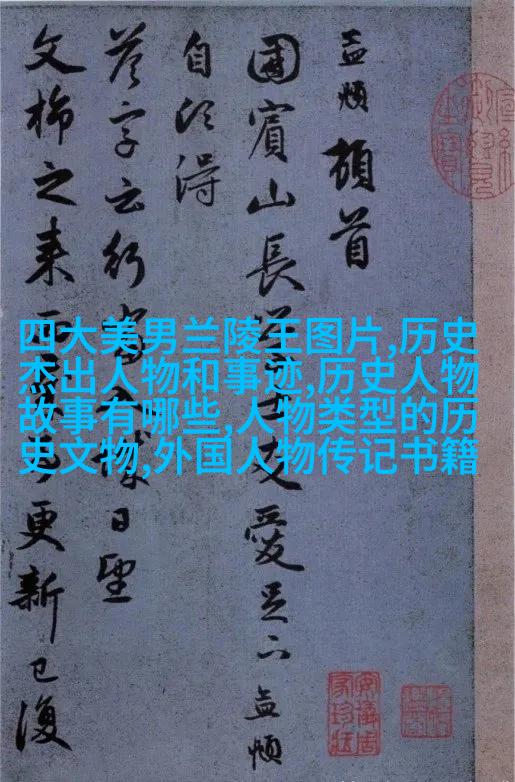 孟頫頓首
國賓山長友愛足下孟頫
自得
字云日望
文之来更新已復
四大美男兰陵王图片,历史
杰出人物和事迹,历史人物
故事有哪些,人物类型的历
史文物,外国人物传记书籍